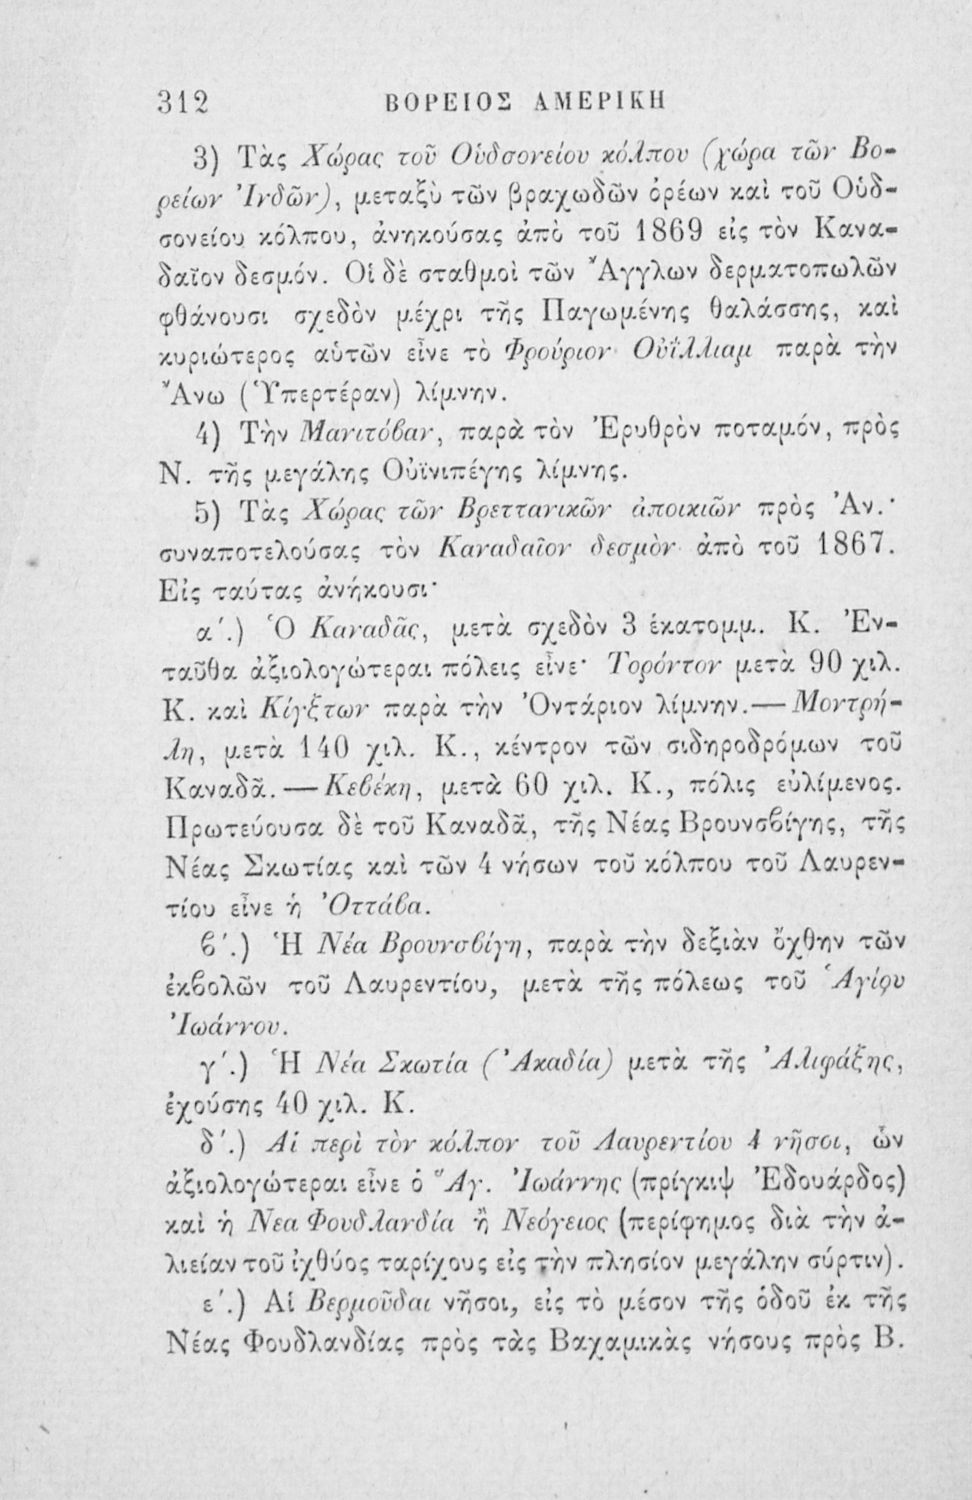 312 ΒΟΡΕΙΟΣ ΑΜΕΡΙΚΗ
3) Τὰς Χώρας τοῦ Οὑδσονείου κόλπου (χώρα τῶν Βο-
ρείων Ἰνδῶν), μεταξὺ τῶν βραχωδῶν ὀρέων καὶ τοῦ Οὑδ-
σονείου κόλπου, ἀνηκούσας ἀπὸ τοῦ 1869 εἰς τὸν Κανα-
δαῖον δεσμόν. Οἱ δὲ σταθμοὶ τῶν Ἄγγλων δερματοπωλῶν
φθάνουσι σχεδὸν μέχρι τῆς Παγωμένης θαλάσσης, καὶ
κυριώτερος αὐτῶν εἶνε τὸ Φρούριον Οὐΐλλιαμ παρὰ τὴν
Ἄνω (Ὑπερτέραν) λίμνην.
4) Τὴν Μανιτόβαν, παρὰ τὸν Ἐρυθρὸν ποταμόν, πρὸς
Ν. τῆς μεγάλης Οὐϊνιπέγης λίμνης.
5) Τὰς Χώρας τῶν Βρεττανικῶν ἀποικιῶν πρὸς Ἀν.·
συναποτελούσας τὸν Καναδαῖον δεσμὸν ἀπὸ τοῦ 1867.
Εἰς ταύτας ἀνήκουσι·
α΄.) Ὁ Καναδᾶς, μετὰ σχεδὸν 3 ἑκατομμ. Κ. Ἐν-
ταῦθα ἀξιολογώτεραι πόλεις εἶνε· Τορόντον μετὰ 90 χιλ.
Κ. καὶ Κίγξτων παρὰ τὴν Ὀντάριον λίμνην.— Μοντρή-
λη, μετὰ 140 χιλ. Κ., κέντρον τῶν σιδηροδρόμων τοῦ
Καναδᾶ.— Κεβέκη, μετὰ 60 χιλ. Κ., πόλις εὐλίμενος.
Πρωτεύουσα δὲ τοῦ Καναδᾶ, τῆς Νέας Βρουνσβίγης, τῆς
Νέας Σκωτίας καὶ τῶν 4 νήσων τοῦ κόλπου τοῦ Λαυρεν-
τίου εἶνε ἡ Ὀττάβα.
ϐ΄.) Ἡ Νέα Βρουνσβίγη, παρὰ τὴν δεξιὰν ὄχθην τῶν
ἐκβολῶν τοῦ Λαυρεντίου, μετὰ τῆς πόλεως τοῦ Ἁγίου
Ἰωάννου.
γ΄.) Ἡ Νέα Σκωτία (Ἀκαδία) μετὰ τῆς Ἀλιφάξης,
ἐχούσης 40 χιλ. Κ.
δ΄.) Αἱ περὶ τὸν κόλπον τοῦ Λαυρεντίου 4 νῆσοι, ὧν
ἀξιολογώτεραι εἶνε ὁ Ἅγ. Ἰωάννης (πρίγκιψ Ἐδουάρδος)
καὶ ἡ Νεα Φουδλανδία ἢ Νεόγειος (περίφημος διὰ τὴν ἁ-
λιείαν τοῦ ἰχθύος ταρίχους εἰς τὴν πλησίον μεγάλην σύρτιν).
ε΄.) Αἱ Βερμοῦδαι νῆσοι, εἰς τὸ μέσον τῆς ὁδοῦ ἐκ τῆς
Νέας Φουδλανδίας πρὸς τὰς Βαχαμικὰς νήσους πρὸς Β.